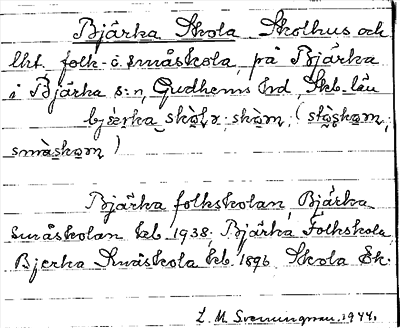 Bjärka Skola Skolhus och
lht, folk- o. småskola, på Bjärka
i Bjärka s:n, Gudhems hd Skb. län
bjærka skola, skom, (
småskom)
Bjärka folkskolan, Bjärka
småskolan tel. 1938, Bjärka Folkskola
Bjerka Småskola tel. 1896. Skola Ek.
L. M. Svenningsson. 1944.